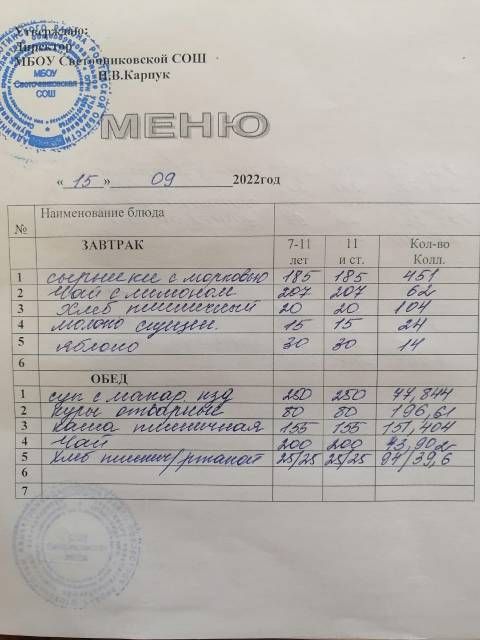 Утверждаю:
Директор
МБОУ Светочниковской СОШ
Н.В.Карпук
МБОУ
Светочниковская
СОШ
МЕНЮ
« 15 » 09 2022год
№ Наименование блюда
ЗАВТРАК 7-11 лет 11 и ст. Кол-во Колл.
1 сырники с морковью 185 185 451
2 Чай с лимоном 207 207 62
3 Хлеб пшеничный 20 20 104
4 молоко сгущен. 15 15 24
5 яблоко 30 30 14
6
ОБЕД
1 суп с макар. изд 250 250 77,844
2 куры отварные 80 80 196,61
3 каша пшеничная 155 155 151,404
4 Чай 200 200 43,902
5 хлеб пшенич/ржаной 25/25 25/25 94/39,6
6
7